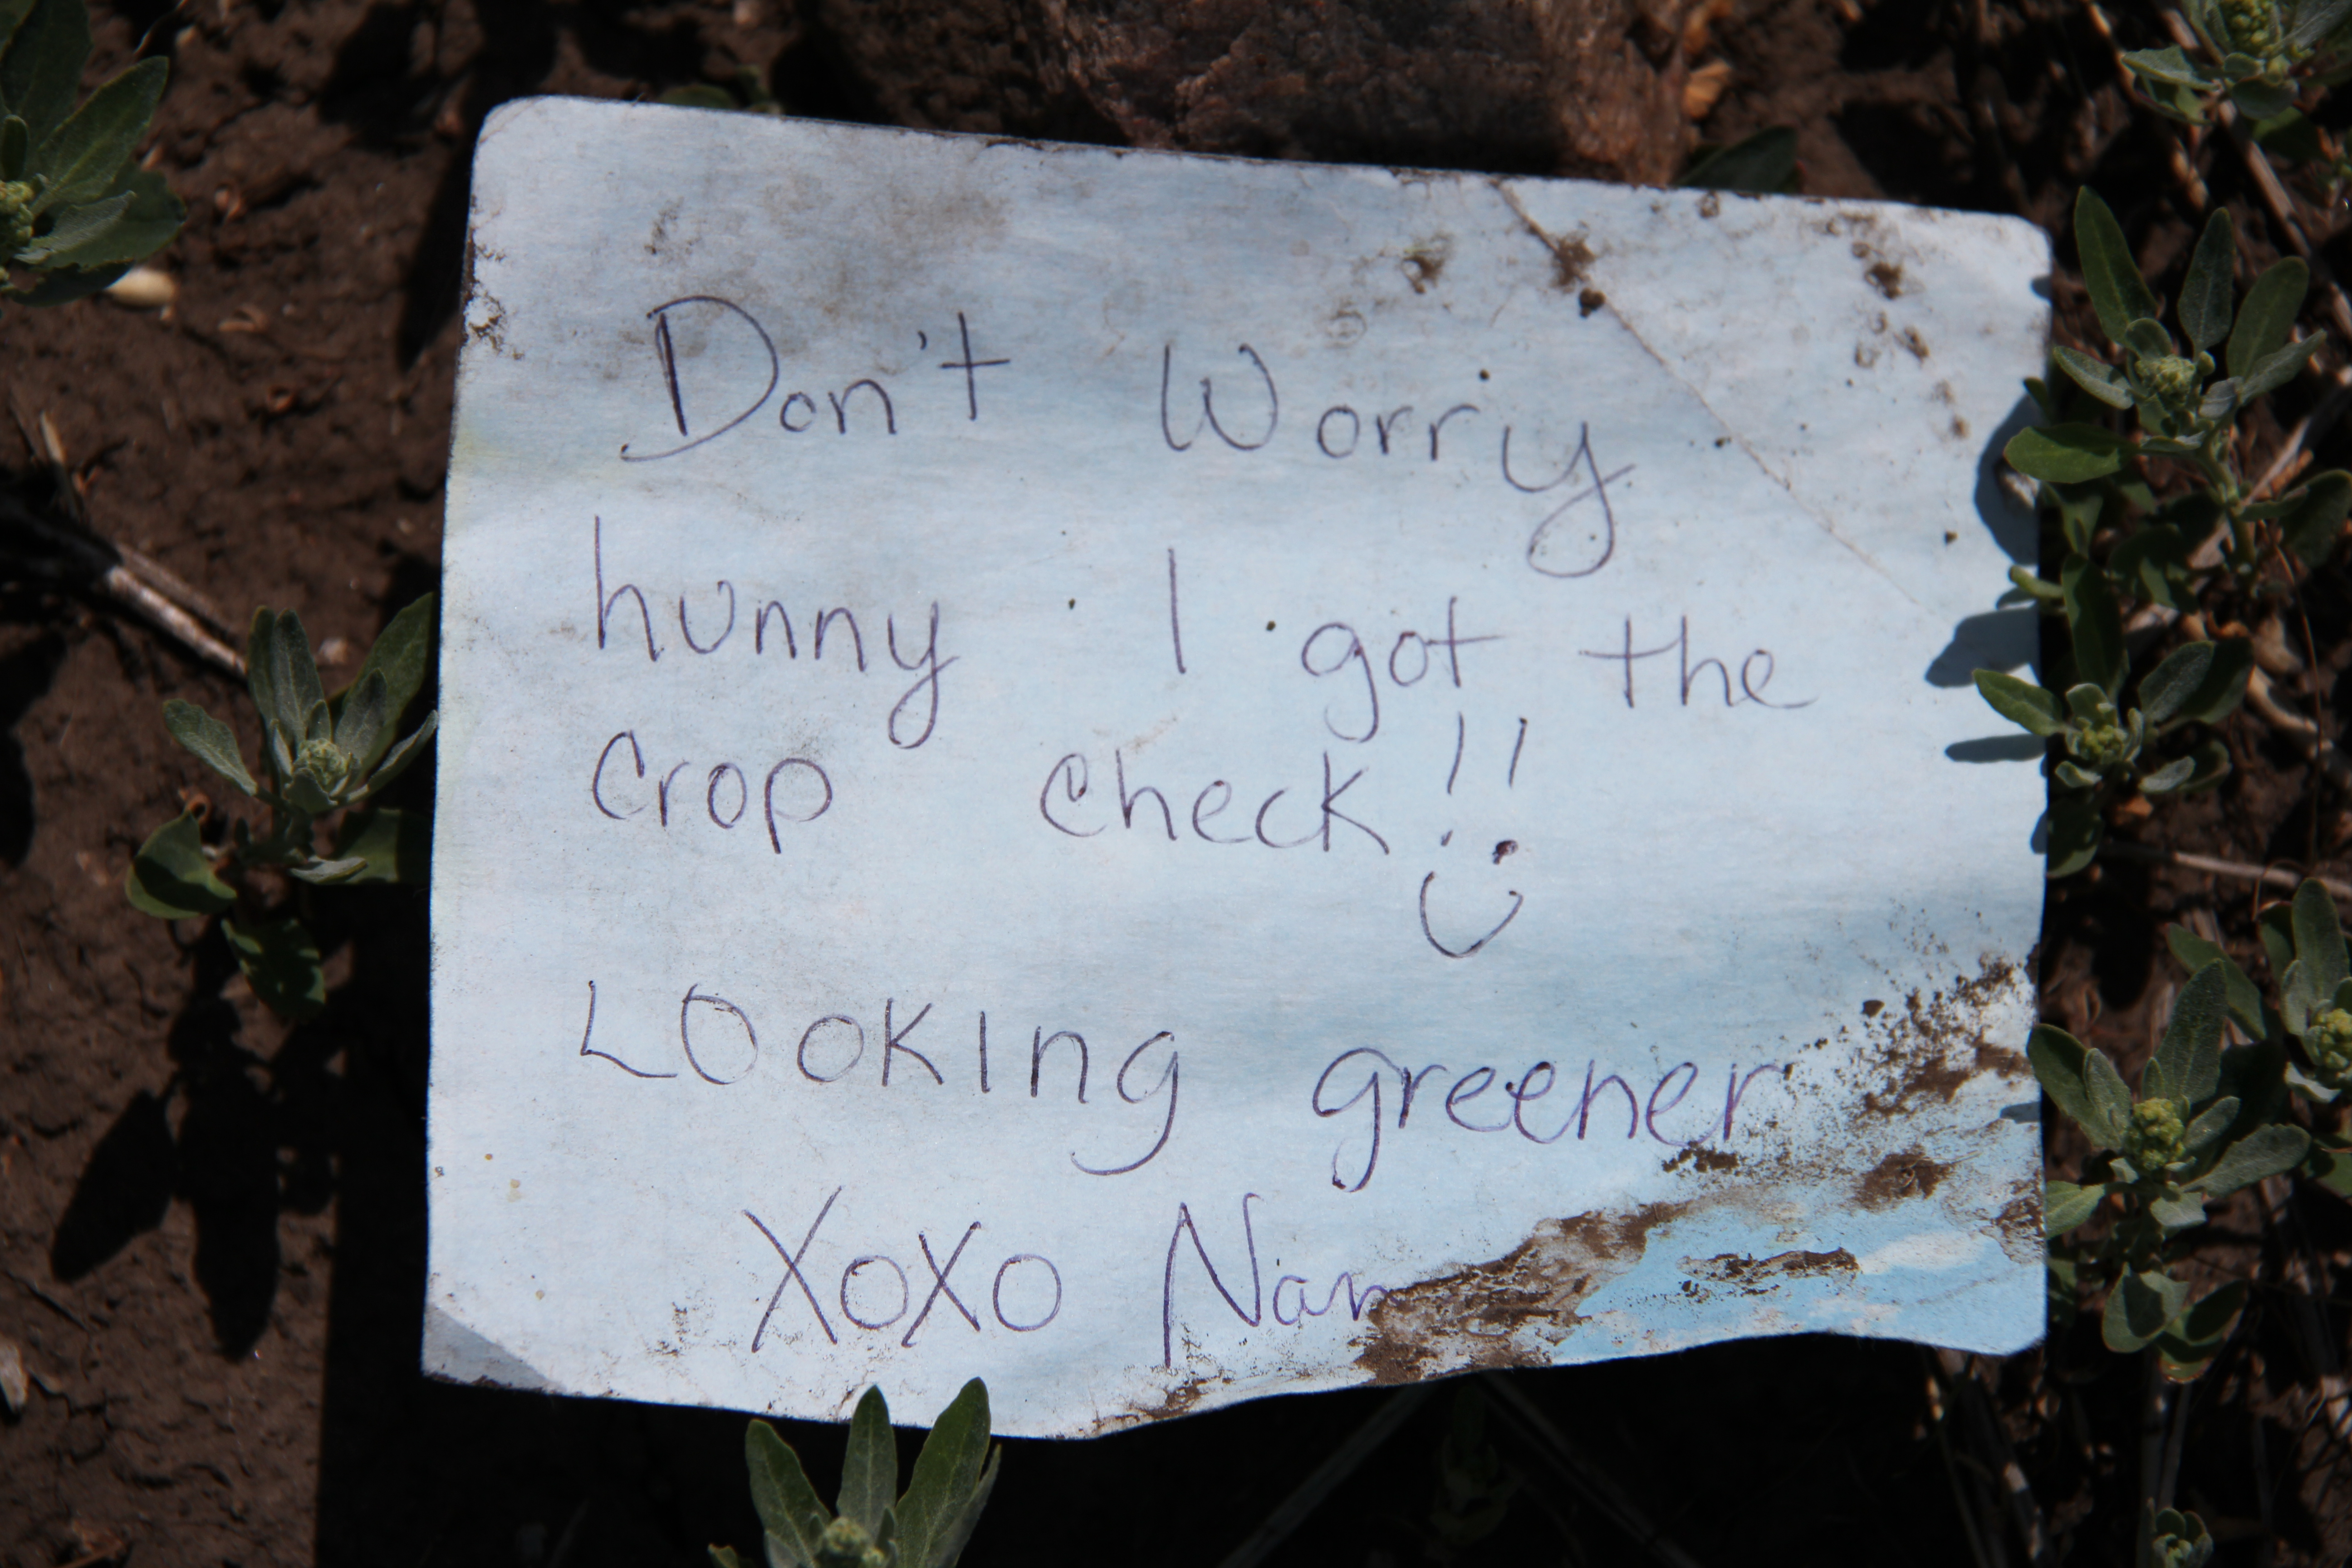 Don't Worry
hunny I got the
crop check!!
Looking greener
XoXo Nan